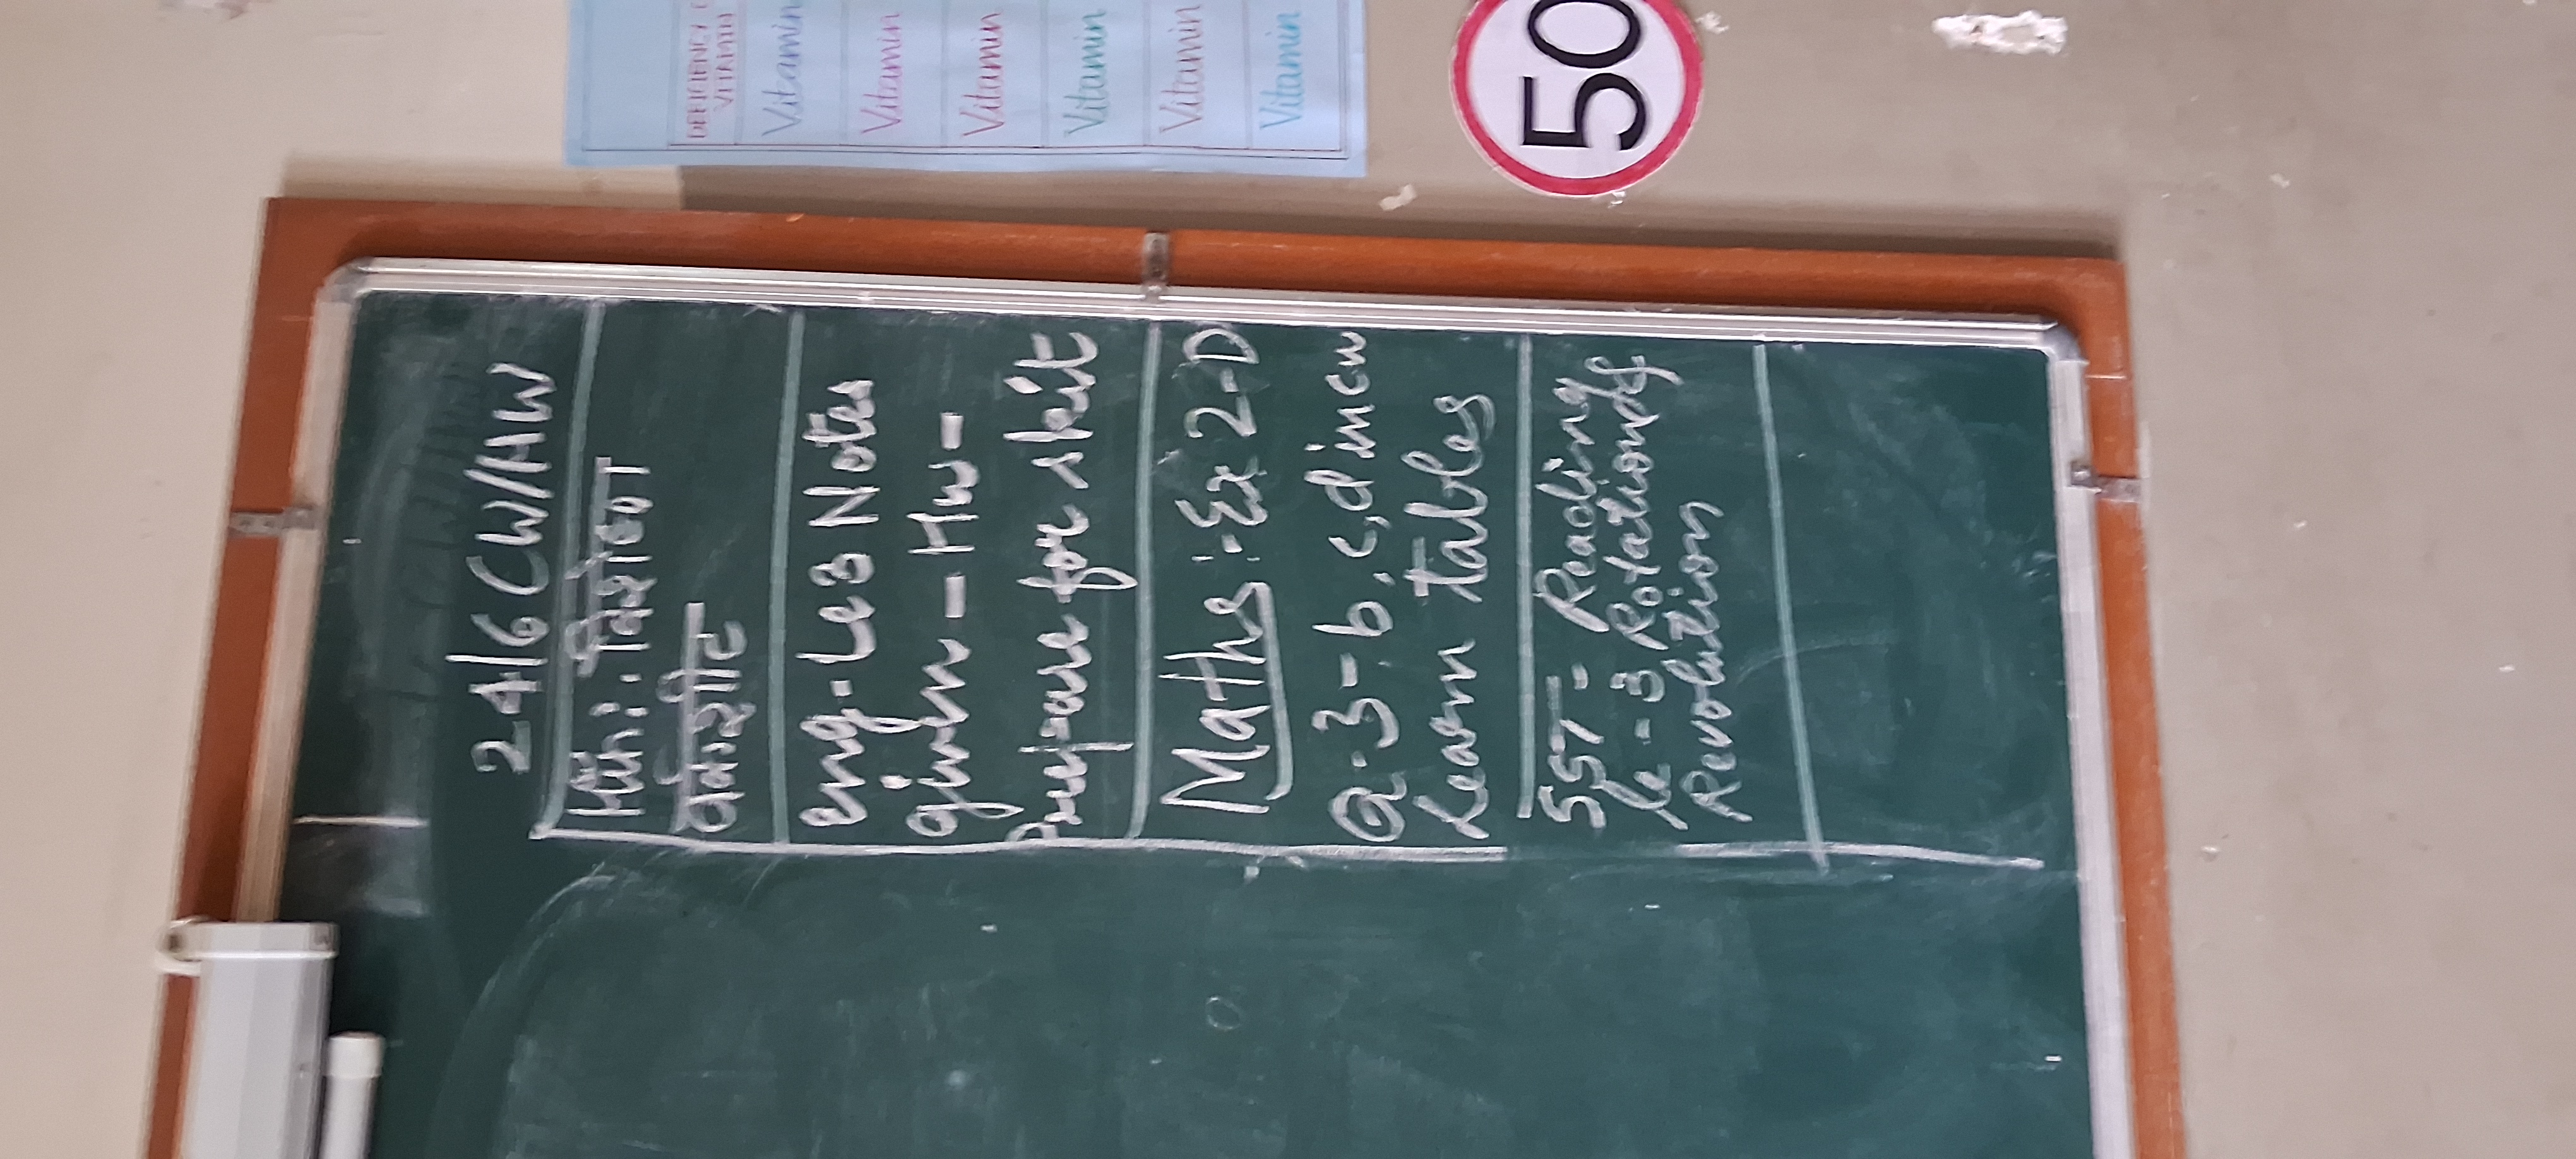 24/6 CW/HW
Hin:. विशेषण
eng - Le 3 Notes
given - Hw -
Prepare for skit
Maths :- Ex 2-D
Q-3-b, c, d in cw
Learn tables
SST - Reading
le - 3 Rotation &
Revolution
DEFICIENCY
VITAMIN
Vitamin
Vitamin
Vitamin
Vitamin
Vitamin
Vitamin
50